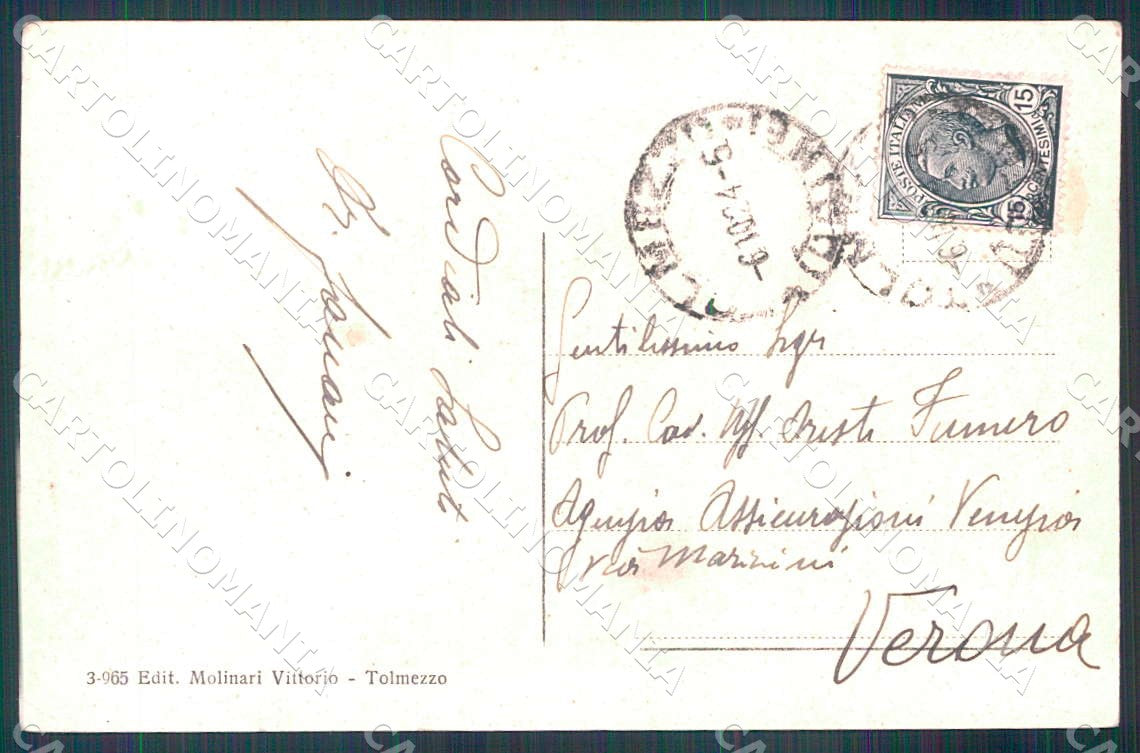 Cordiali saluti
POSTE ITALIANE
15
CENTESIMI
15
TOLMEZZO
6 10 24-5
Gentilissimo Sigr
Prof. Cav. Uff. Oreste Fumero
Agenzia Assicurazioni Venezia
Via Mazzini
Verona
3-965 Edit. Molinari Vittorio - Tolmezzo
CARTOLINOMANIA